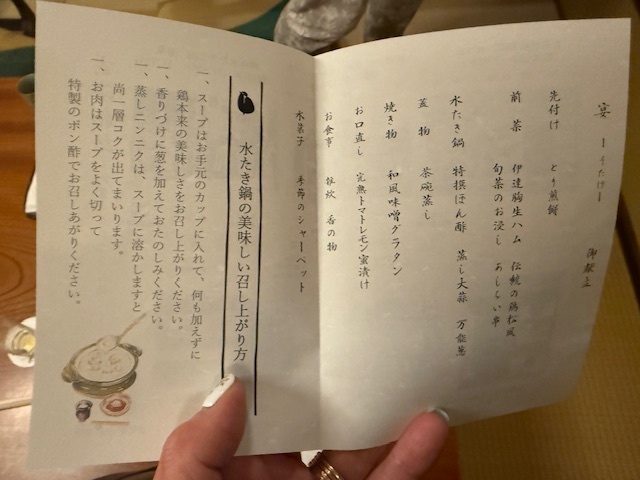 宴 ーうたげー
御献立
先付け とり煎餅
前菜 伊達鶏生ハム 伝統の鶏松風
旬菜のお浸し あしらい串
水たき鍋 特撰ぽん酢 蒸し大蒜 万能葱
蓋物 茶碗蒸し
焼き物 和風味噌グラタン
お口直し 完熟トマトレモン蜜漬け
お食事 雑炊 香の物
水菓子 季節のシャーベット
水たき鍋の美味しい召し上がり方
一、スープはお手元のカップに入れて、何も加えずに
鶏本来の美味しさをお召し上がりください。
一、香りづけに葱を加えておたのしみください。
一、蒸しニンニクは、スープに溶かしますと
尚一層コクが出てまいります。
一、お肉はスープをよく切って
特製のポン酢でお召しあがりください。